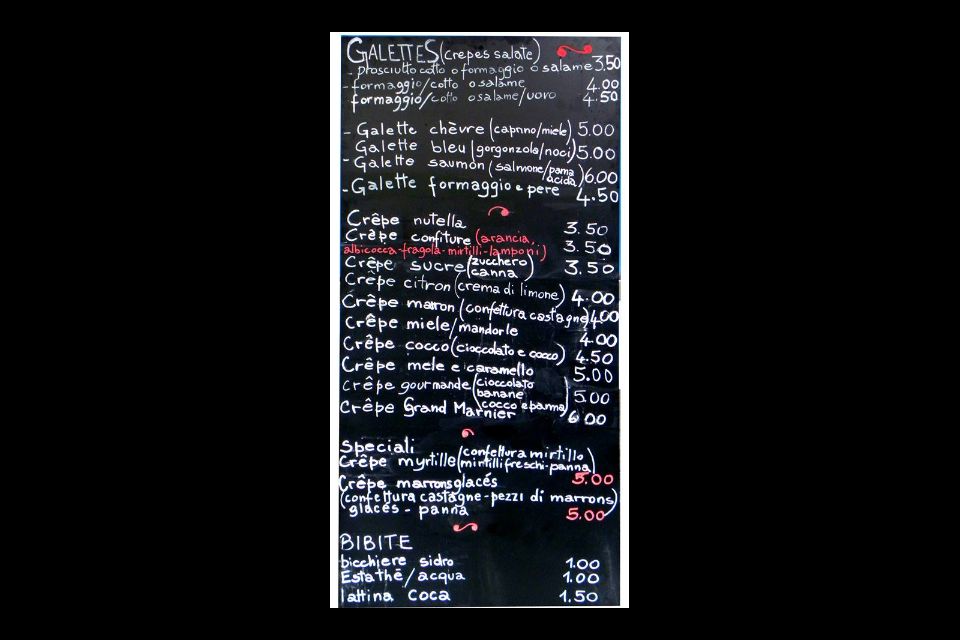 GALETTES (crepes salate)
- prosciutto cotto o formaggio o salame 3.50
- formaggio/cotto o salame 4.00
formaggio/cotto o salame/uovo 4.50
- Galette chèvre (caprino/miele) 5.00
Galette bleu (gorgonzola/noci) 5.00
- Galette saumon (salmone/panna acida) 6.00
- Galette formaggio e pere 4.50
Crêpe nutella 3.50
Crêpe confiture (arancia, 3.50
albicocca-fragola-mirtilli-lamponi)
Crêpe sucre (zucchero canna) 3.50
Crêpe citron (crema di limone) 4.00
Crêpe marron (confettura castagne) 4.00
Crêpe miele/mandorle 4.00
Crêpe cocco (cioccolato e cocco) 4.50
Crêpe mele e caramello 5.00
Crêpe gourmande (cioccolato banane cocco e panna) 5.00
Crêpe Grand Marnier 6.00
Speciali
Crêpe myrtille (confettura mirtillo mirtilli freschi-panna) 5.00
Crêpe marrons glacés
(confettura castagne-pezzi di marrons
glacés - panna) 5.00
BIBITE
bicchiere sidro 1.00
Estathé/acqua 1.00
lattina coca 1.50